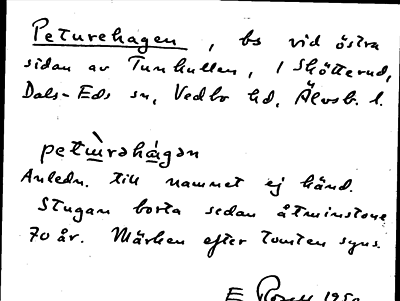 Peturehagen, bs vid östra
sidan av Tunhullen, i Skötterud,
Dals-Eds sn, Vedbo hd, Älvsb. l.
petɯ̀rəhágən
Anledn. till namnet ej känd.
Stugan borta sedan åtminstone
70 år. Märken efter tomten syns.
E